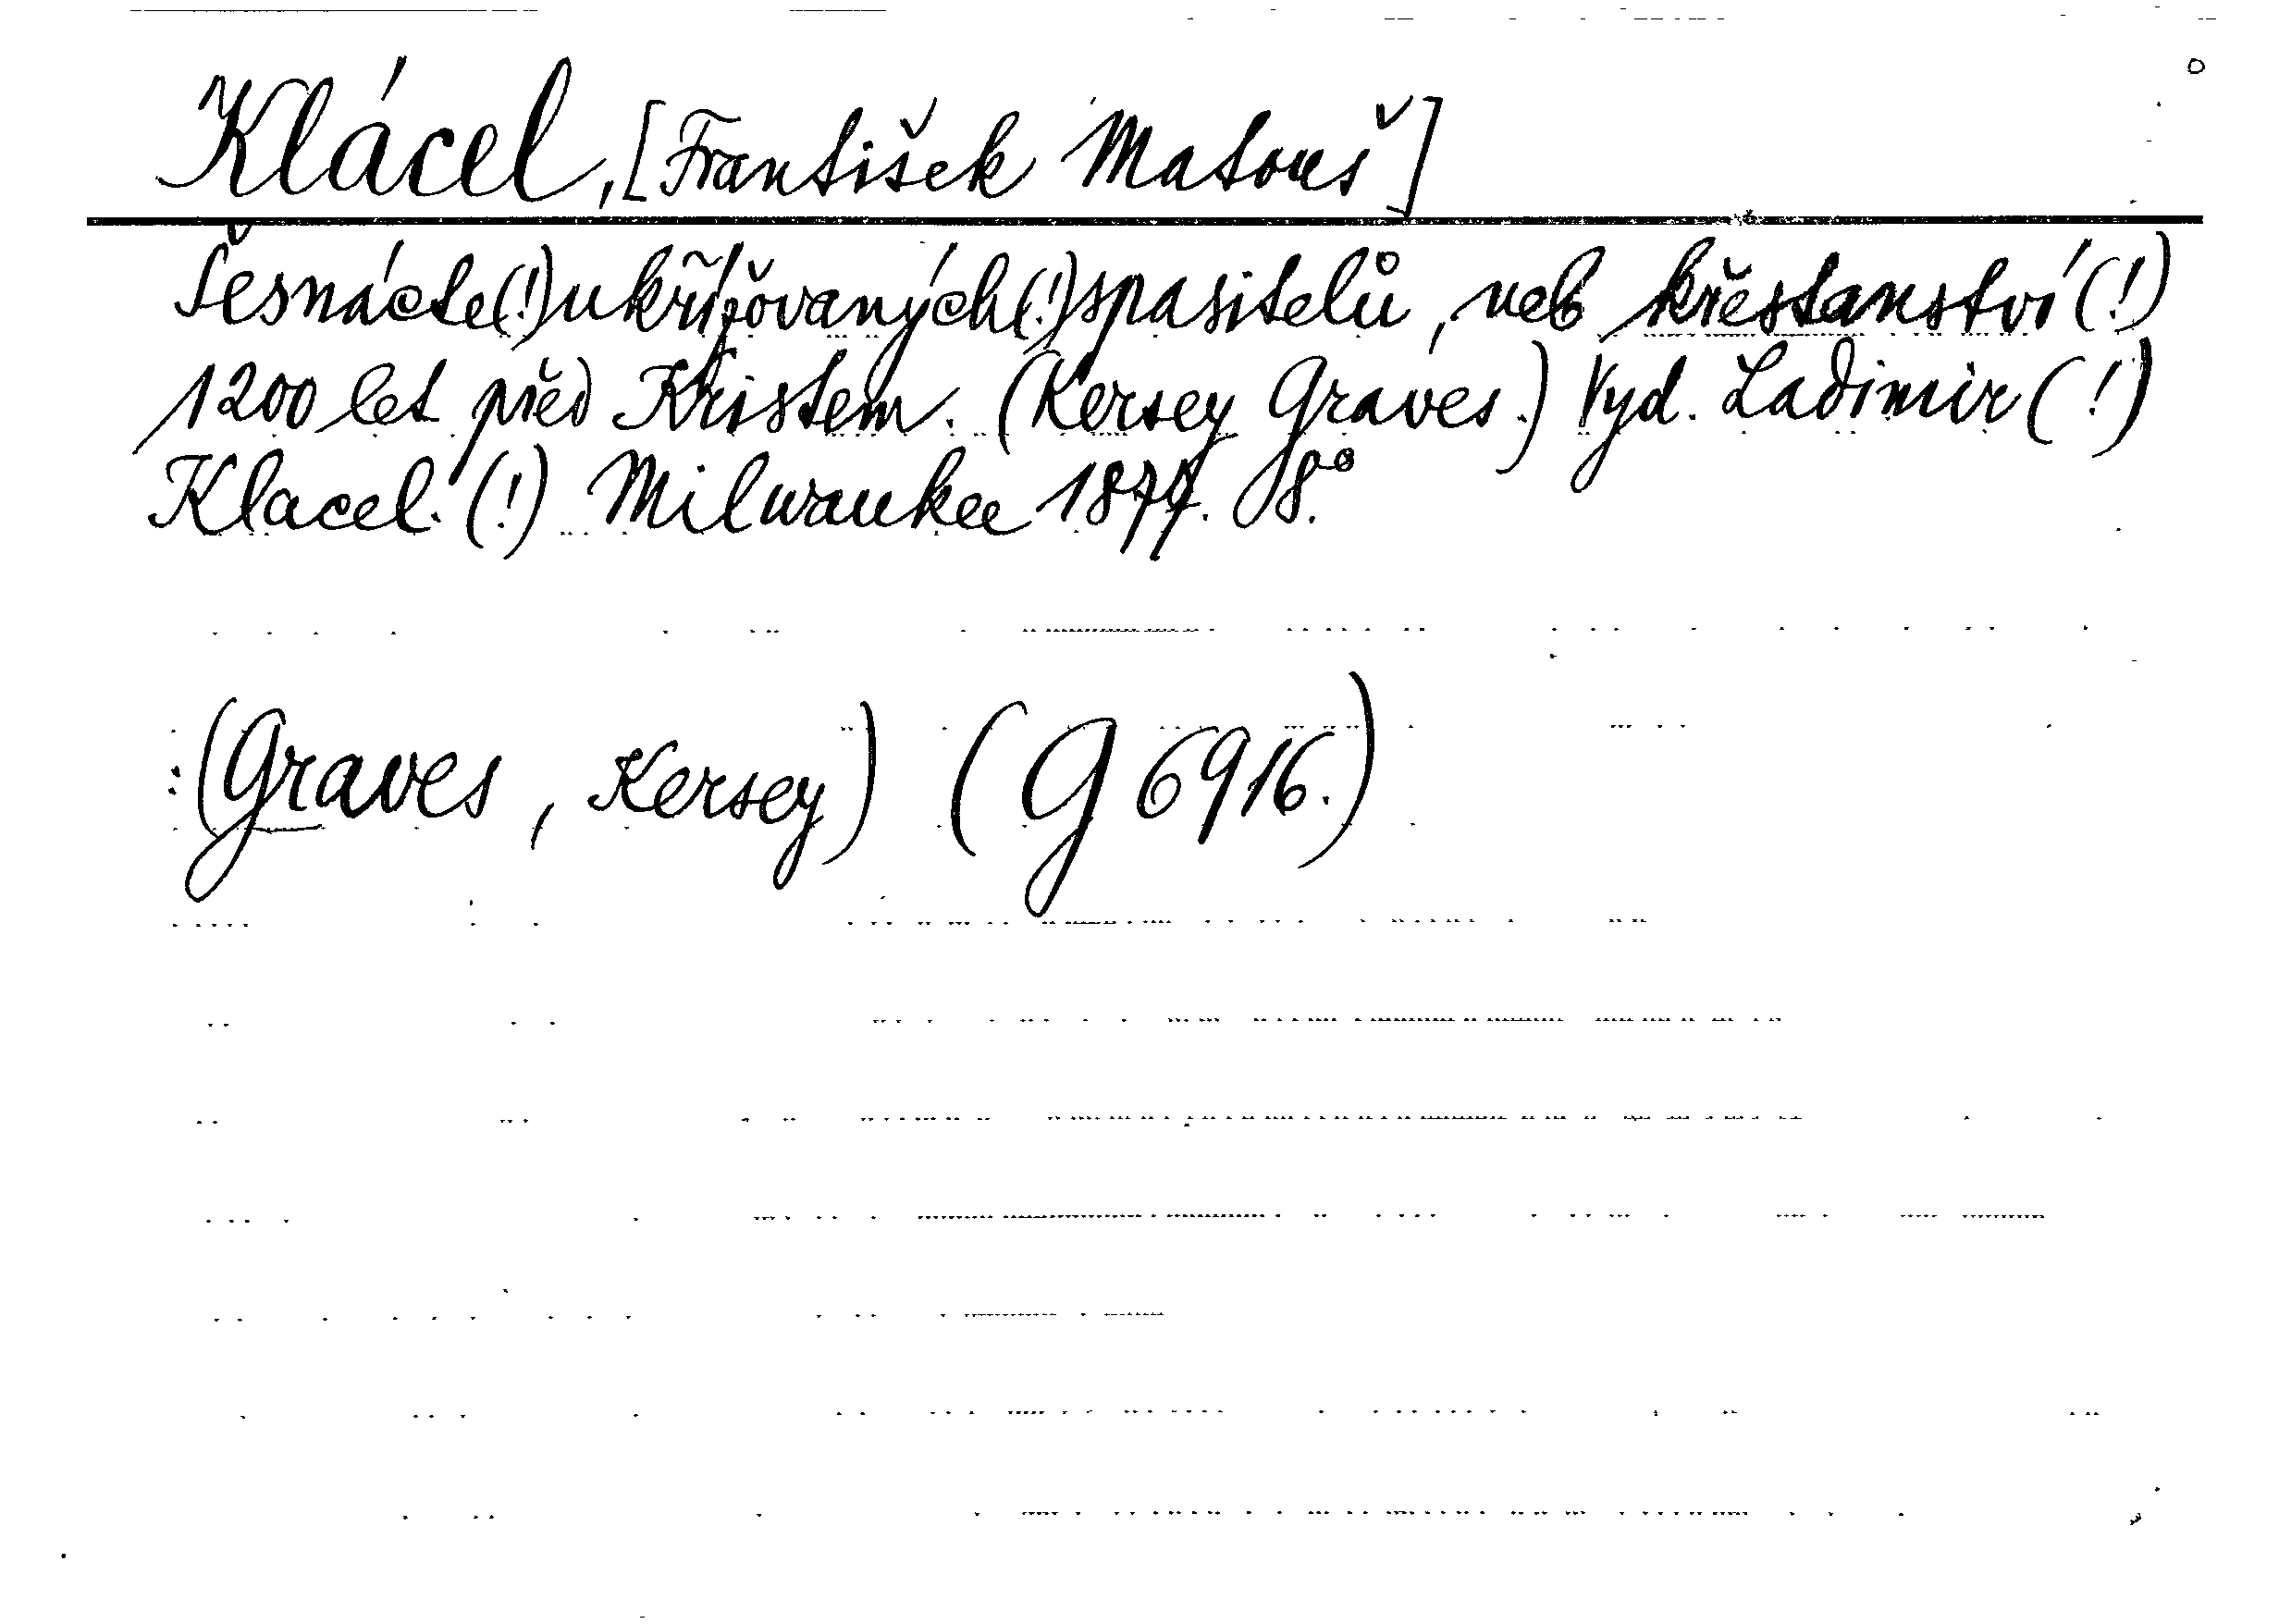 Klácel, [František Matouš]
Šesnácte(!) ukřížovaných(!) spasitelů, neb křestanství (!)
1200 let před Kristem. (Kersey Graves.) Vyd. Ladimir (!)
Klacel. (!) Milwaukee 1877. 8°.
(Graves, Kersey) (G 6916.)